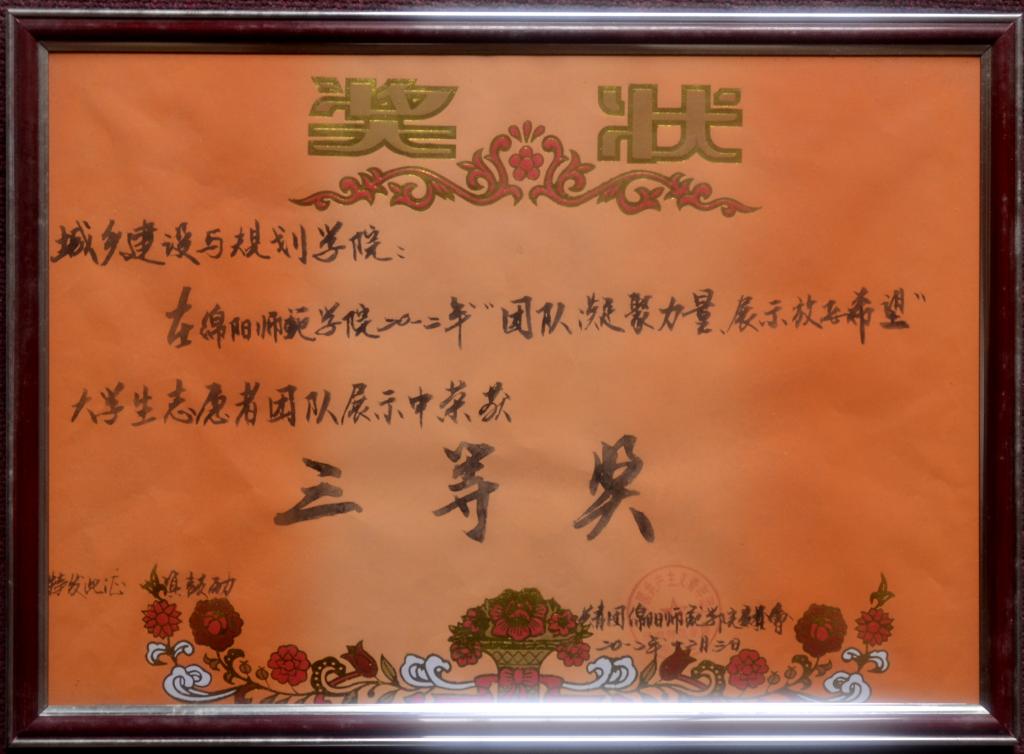 奖状
城乡建设与规划学院：
在绵阳师范学院二〇一二年“团队凝聚力量、展示放飞希望”
大学生志愿者团队展示中荣获
三等奖
特发此证 以资鼓励
共青团绵阳师范学院委员会
二〇一二年十二月三日